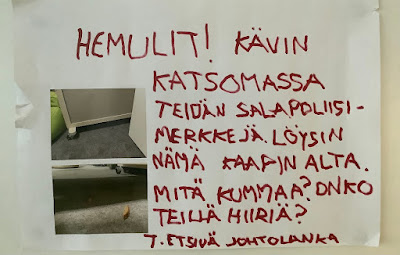 HEMULIT! KÄVIN
KATSOMASSA
TEIDÄN SALAPOLIISI-
MERKKEJÄ. LÖYSIN
NÄMÄ KAAPIN ALTA.
MITÄ KUMMAA? ONKO
TEILLÄ HIIRIÄ?
T. ETSIVÄ JOHTOLANKA